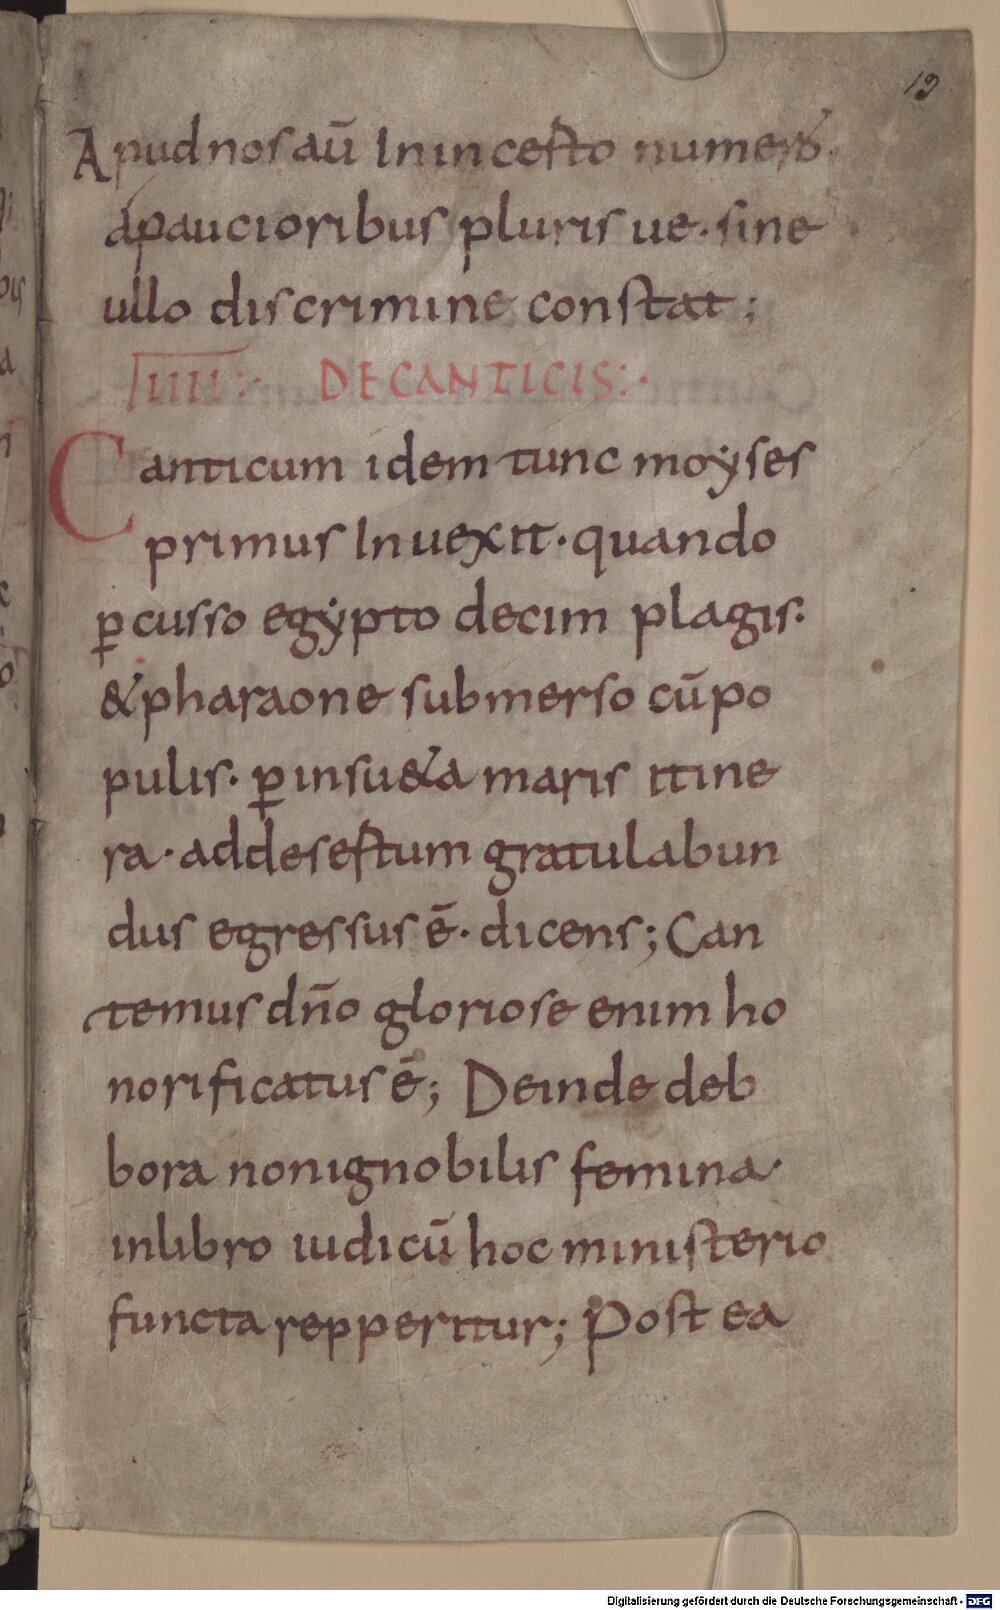 19
Apud nos aū In incesto numero
a paucioribus pluris ue· sine
ullo discrimine constat;
IIII:· DE CANTICIS:·
Canticum idem tunc moẏses
primus Inuexit· quando
ꝑcusso egẏpto decim plagis:
& pharaone submerso cū po
pulis· ꝑ insu&a maris itine
ra· ad desestum gratulabun
dus egressus ē· dicens; Can
temus dn̄o gloriose enim ho
norificatus ē; Deinde deb
bora non ignobilis femina·
in libro iudicū hoc ministerio
functa repperitur; Post ea
Digitalisierung gefördert durch die Deutsche Forschungsgemeinschaft - DFG